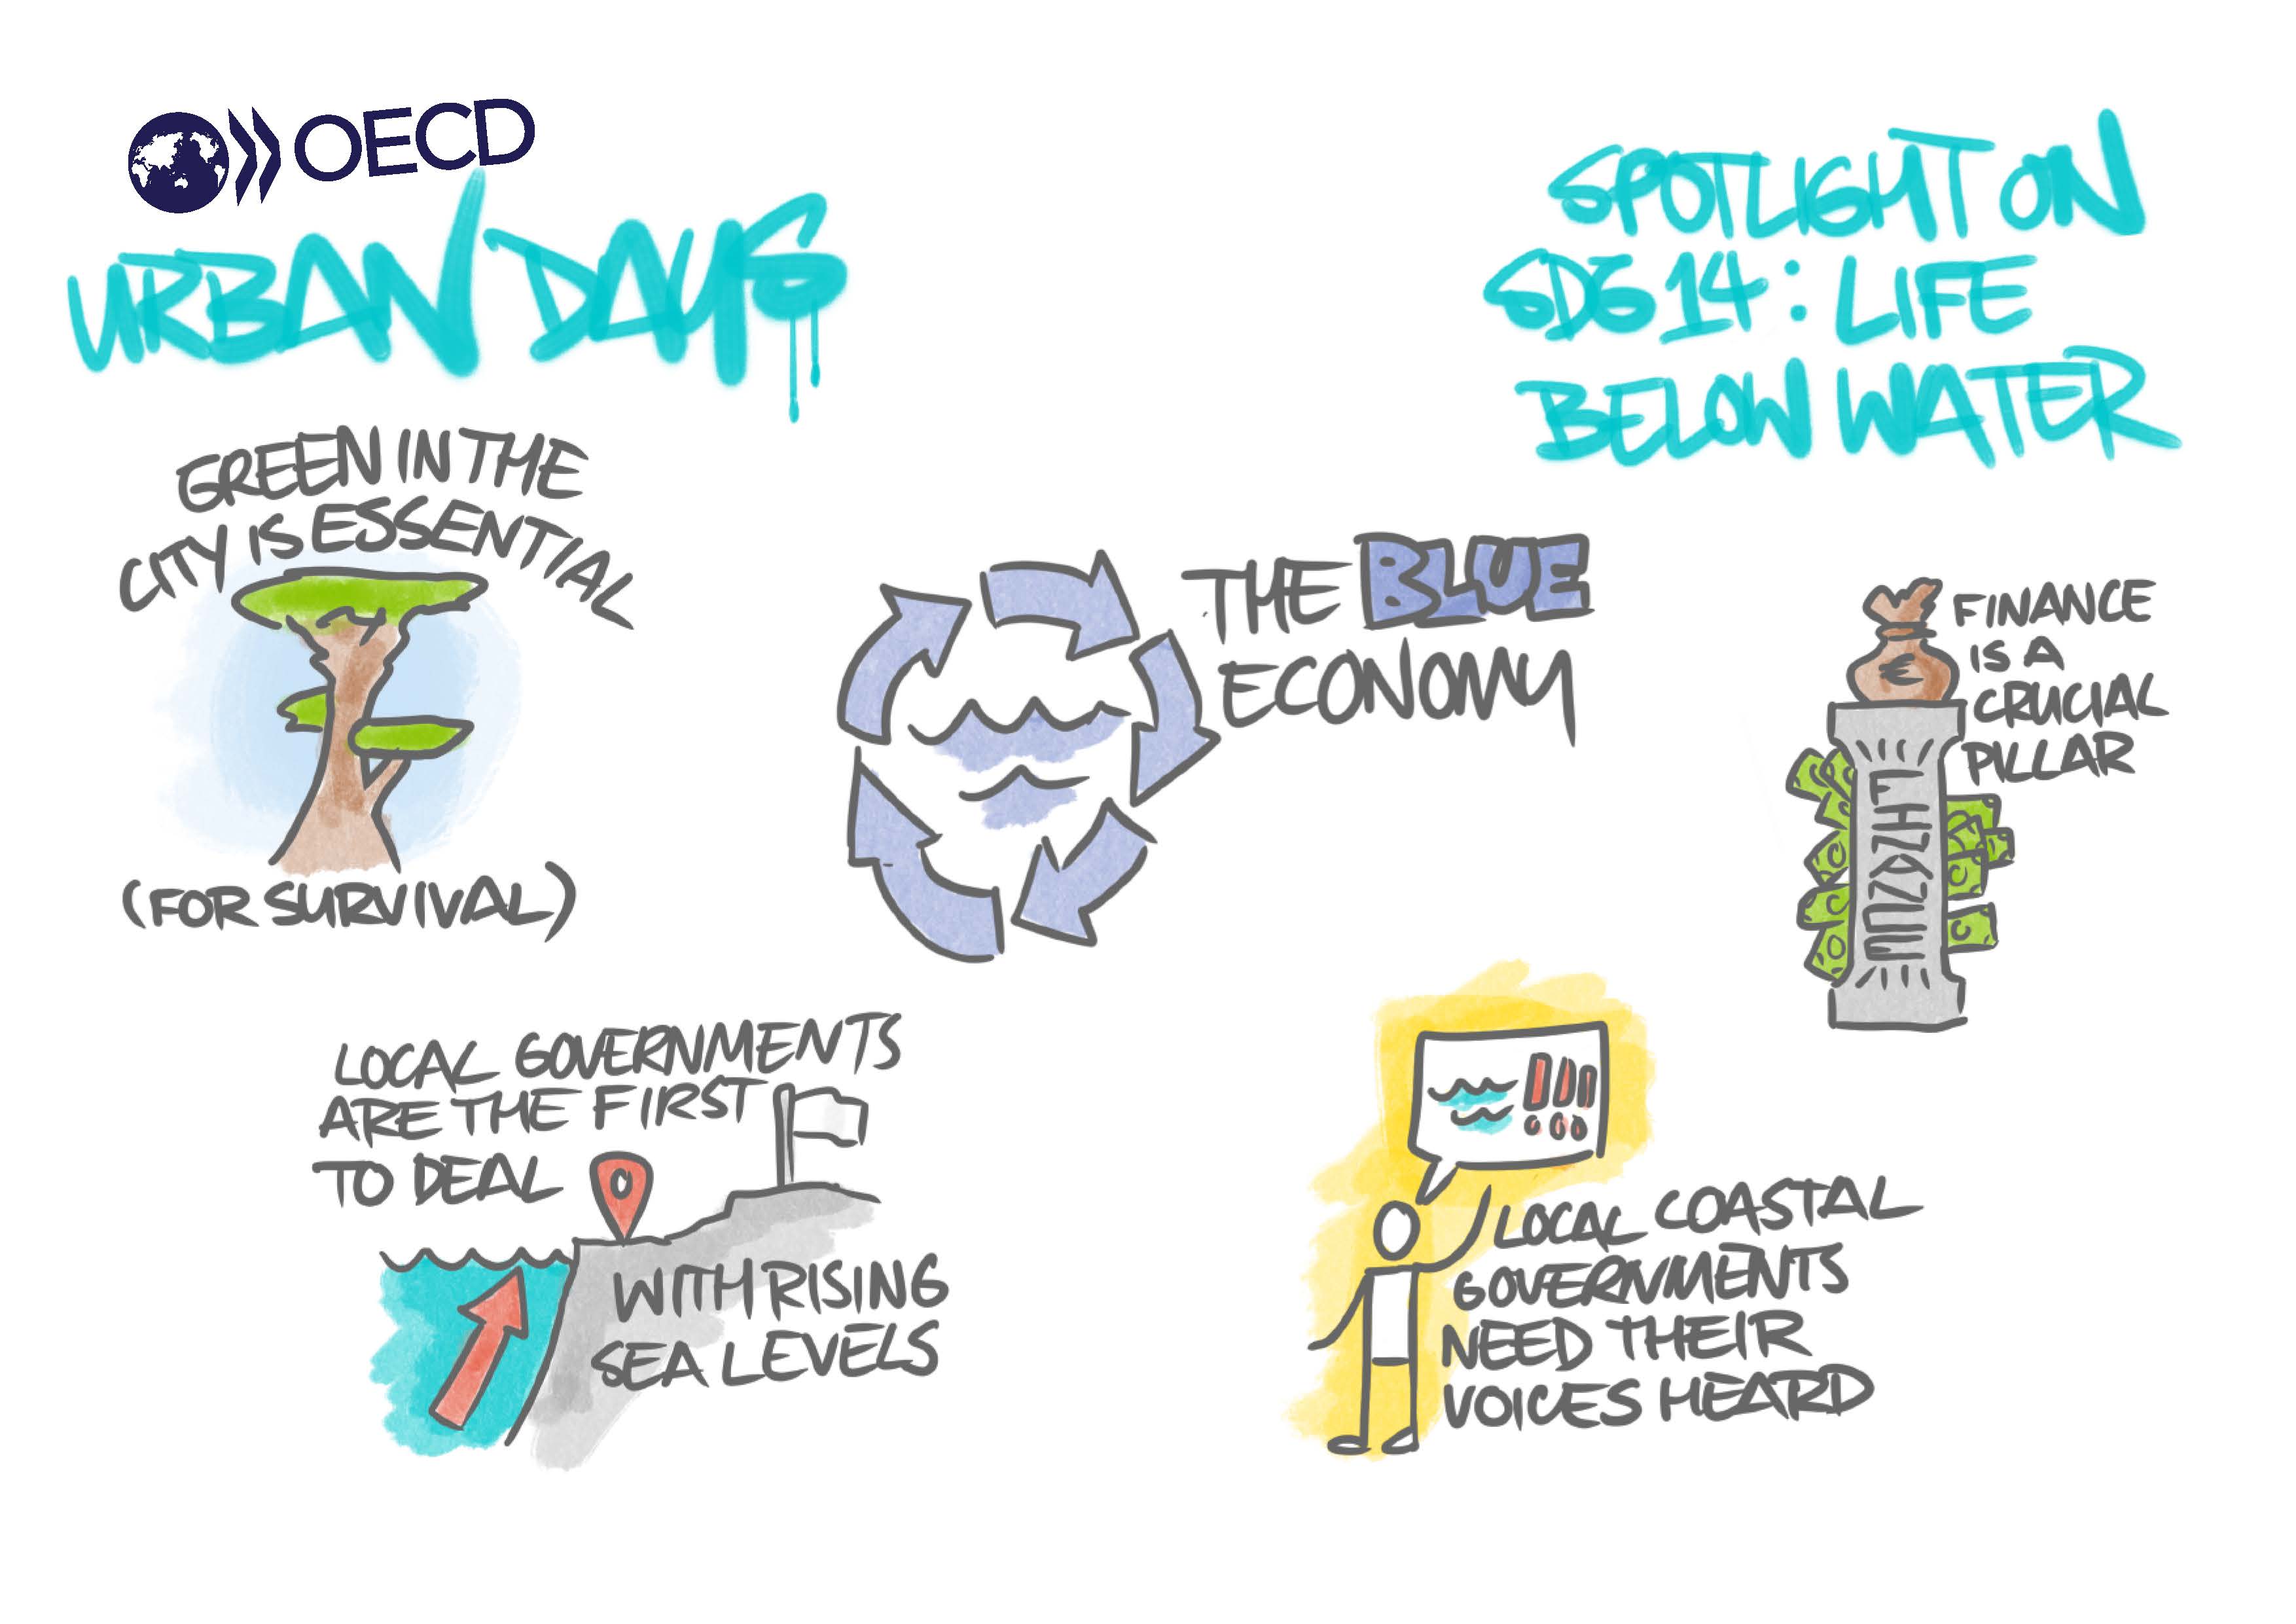 OECD
URBAN DAYS
SPOTLIGHT ON
SDG 14: LIFE
BELOW WATER
GREEN IN THE
CITY IS ESSENTIAL
(FOR SURVIVAL)
THE BLUE
ECONOMY
€
FINANCE
IS A
CRUCIAL
PILLAR
FINANCE
LOCAL GOVERNMENTS
ARE THE FIRST
TO DEAL
WITH RISING
SEA LEVELS
!!!
LOCAL COASTAL
GOVERNMENTS
NEED THEIR
VOICES HEARD